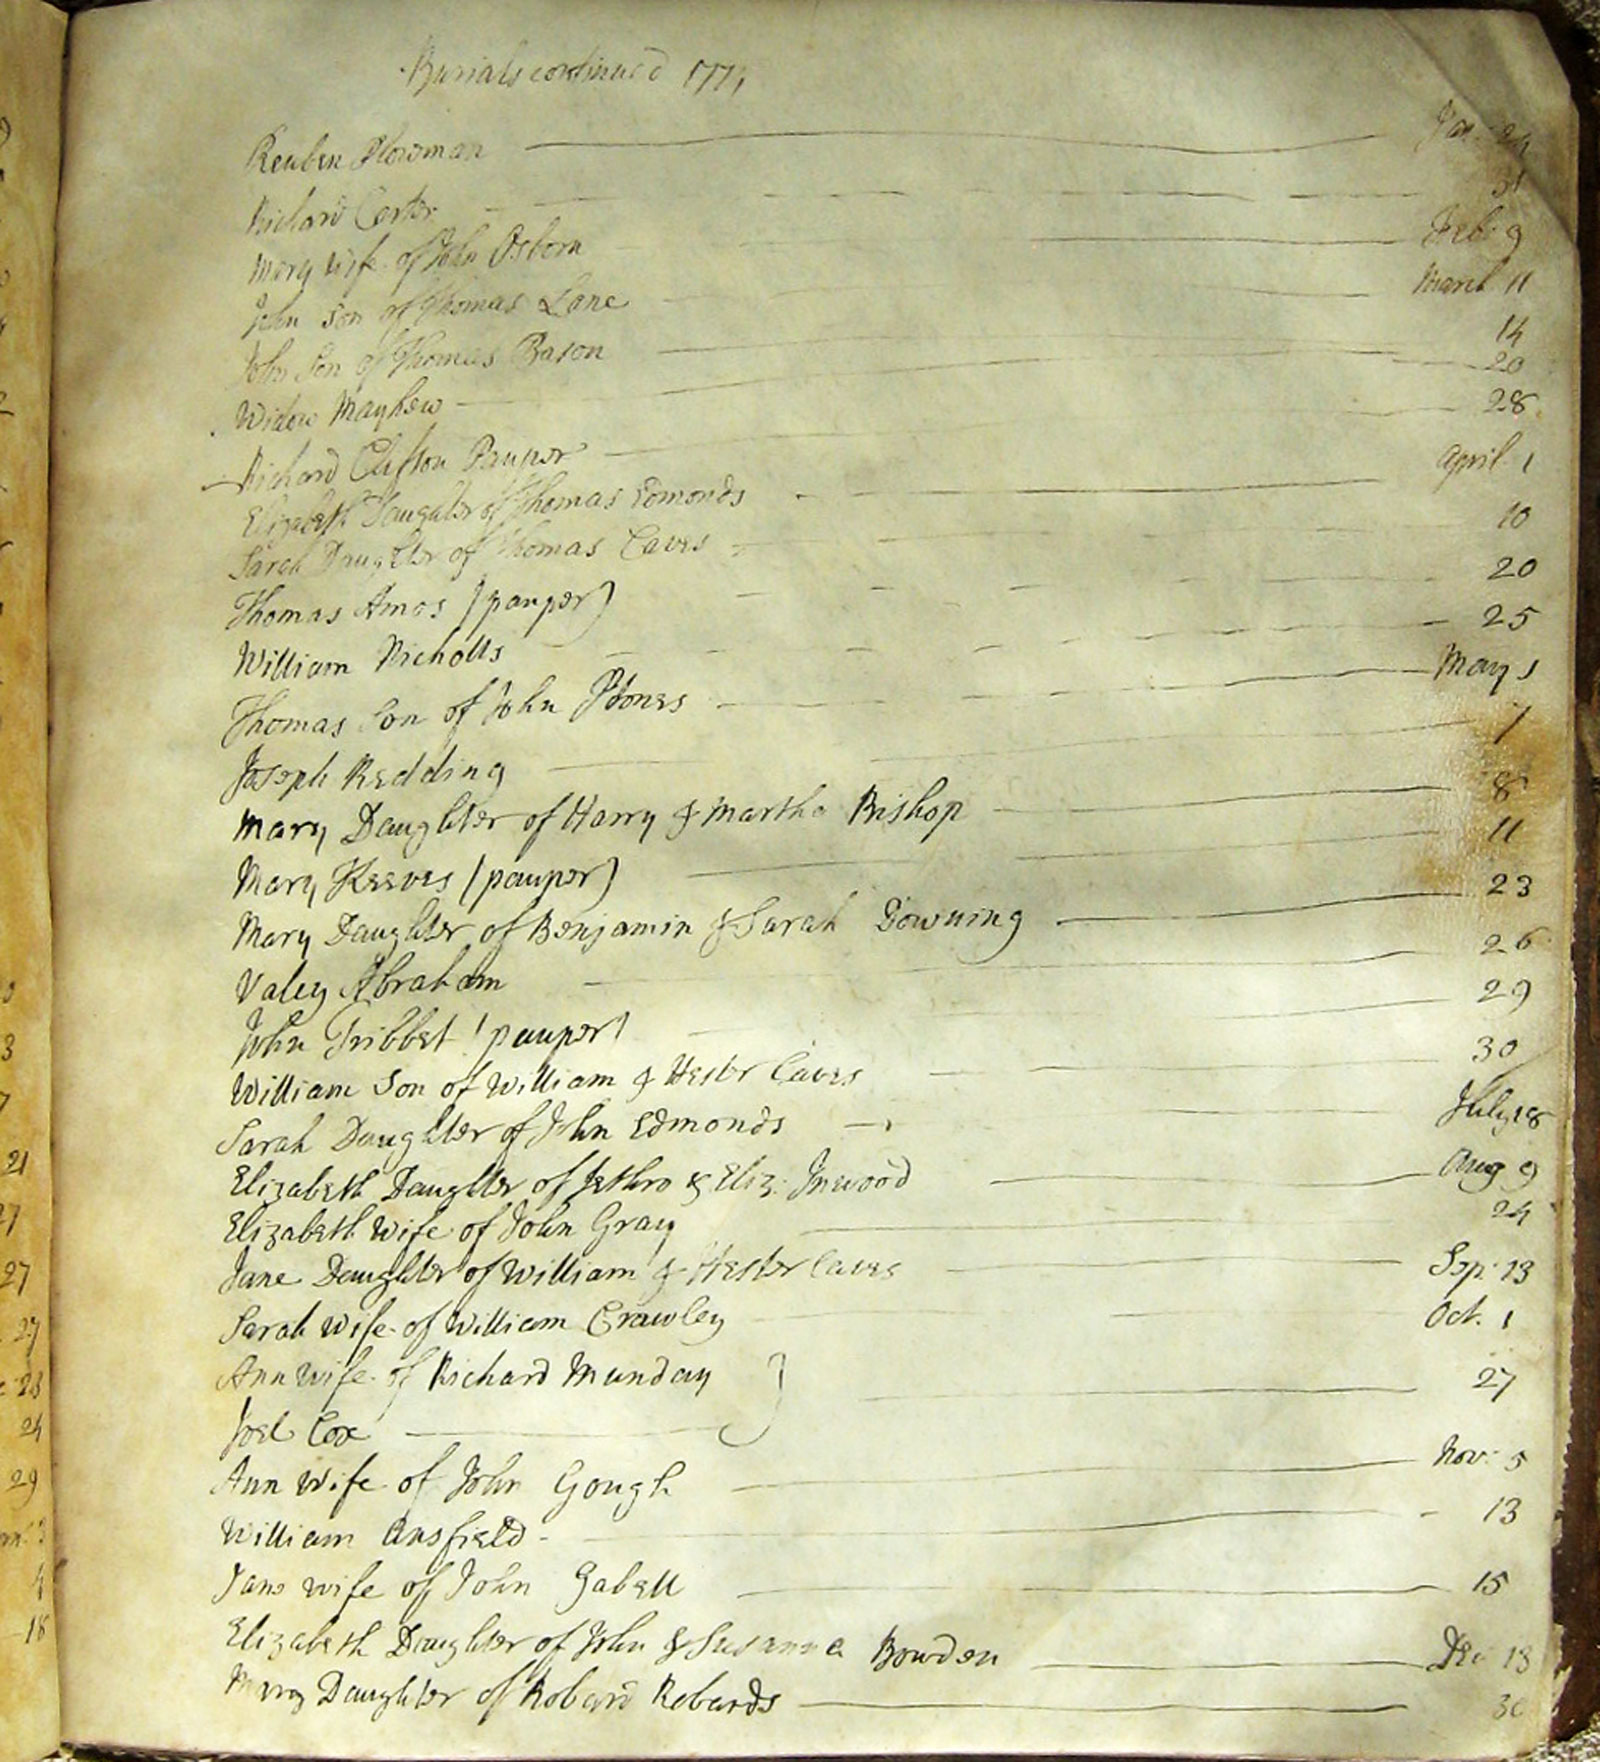 Burials continued 1771
Reuben Plowman Jan. 24
Richard Carter 31
Mary Wife of John Osborn Feb. 9
John Son of Thomas Lane March 11
John Son of Thomas Bason 14
Widow Mayhew 20
Richard Clifton Pauper 28
Elizabeth Daughter of Thomas Edmonds April 1
Sarah Daughter of Thomas Caves 10
Thomas Amos (pauper) 20
William Nicholls 25
Thomas Son of John May 1
Joseph Redding 7
Mary Daughter of Harry & Martha Bishop 8
Mary Keeves (pauper) 11
Mary Daughter of Benjamin & Sarah Downing 23
Valey Abraham 26
John Tribbet (pauper) 29
William Son of William & Hester Caves 30
Sarah Daughter of John Edmonds July 18
Elizabeth Daughter of Jethro & Eliz: Inwood Aug 9
Elizabeth Wife of John Gray 24
Jane Daughter of William & Hester Caves Sep: 13
Sarah Wife of William Crawley Oct. 1
Ann Wife of Richard Munday } 27
Joel Cox
Ann Wife of John Gough Nov: 5
William Ansfield 13
Jane wife of John Gabell 15
Elizabeth Daughter of John & Susanna Bowden Dec 13
Mary Daughter of Robard Robards 30
21
27
27
27
28
24
29
3
4
18